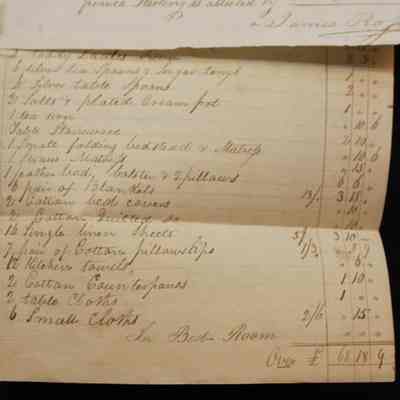 pounds Sterling as attested by
James Ro
2 Toddy Ladles
6 Silver Tea Spoons & Sugar tongs
6 Silver table Spoons 2
2 Salts & plated Cream pot 1
1 tea urn " 10 6
Table Stoneware
1 Small folding bedstead & Matress 2 10 "
1 Matress " 10 6
1 feather bed, bolster & 2 pillows " 15 "
6 pair of Blankets 13/ 3 18 "
2 Cotton bed covers " 10 "
2 Cotton Quilted do
14 Single linen Sheets 5/ 3 10 "
7 pair of Cotton pillowslips 1/3
12 Kitchen towels " 6 "
2 Cotton Counterpanes 1 10 "
2 table Cloths 1 " "
6 Small Cloths 2/6 " 15 "
In Bed Room
Over £ 68 18 9